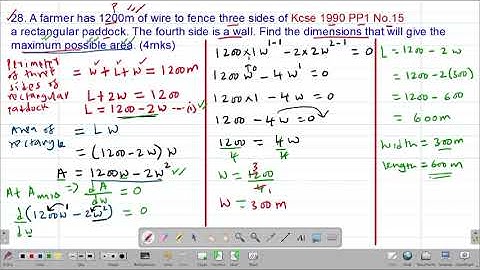 28. A farmer has 1200m of wire to fence three sides of Kcse 1990 PP1 No.15
a rectangular paddock. The fourth side is a wall. Find the dimensions that will give the
maximum possible area. (4mks)
Perimeter of three sides of rectangular paddock = W + L + W = 1200m
L + 2W = 1200
L = 1200 - 2W --- (i)
Area of rectangle = L W
= (1200 - 2W) W
A = 1200W - 2W²
At A max => dA/dw = 0
d/dw (1200W¹ - 2W²) = 0
1200×1W¹⁻¹ - 2×2W²⁻¹ = 0
1200W⁰ - 4W¹ = 0
1200×1 - 4W = 0
1200 - 4W = 0
1200/4 = 4W/4
W = 1200/4
3
1
W = 300m
L = 1200 - 2W
= 1200 - 2(300)
= 1200 - 600
= 600m
Width = 300m
length = 600m